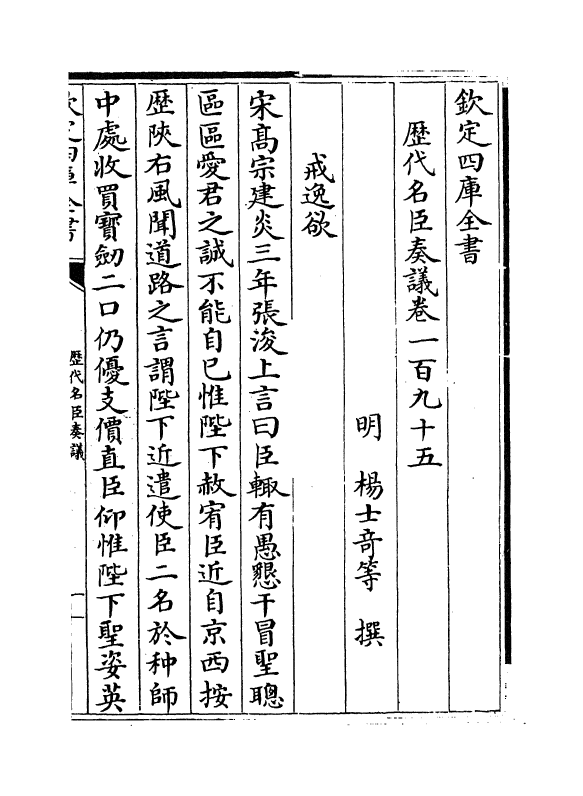 欽定四庫全書
歴代名臣奏議卷一百九十五
明　楊士竒等　撰
戒逸欲
宋髙宗建炎三年張浚上言曰臣輙有愚懇干冒聖聰
區區愛君之誠不能自已惟陛下赦宥臣近自京西按
歴陜右風聞道路之言謂陛下近遣使臣二名於种師
中處收買寳劒二口仍優支價直臣仰惟陛下聖姿英
欽定四庫全書
歴代名臣奏議
一